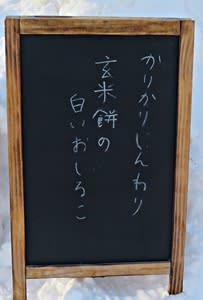 かりかりじんわり
玄米餅の
白いおしるこ